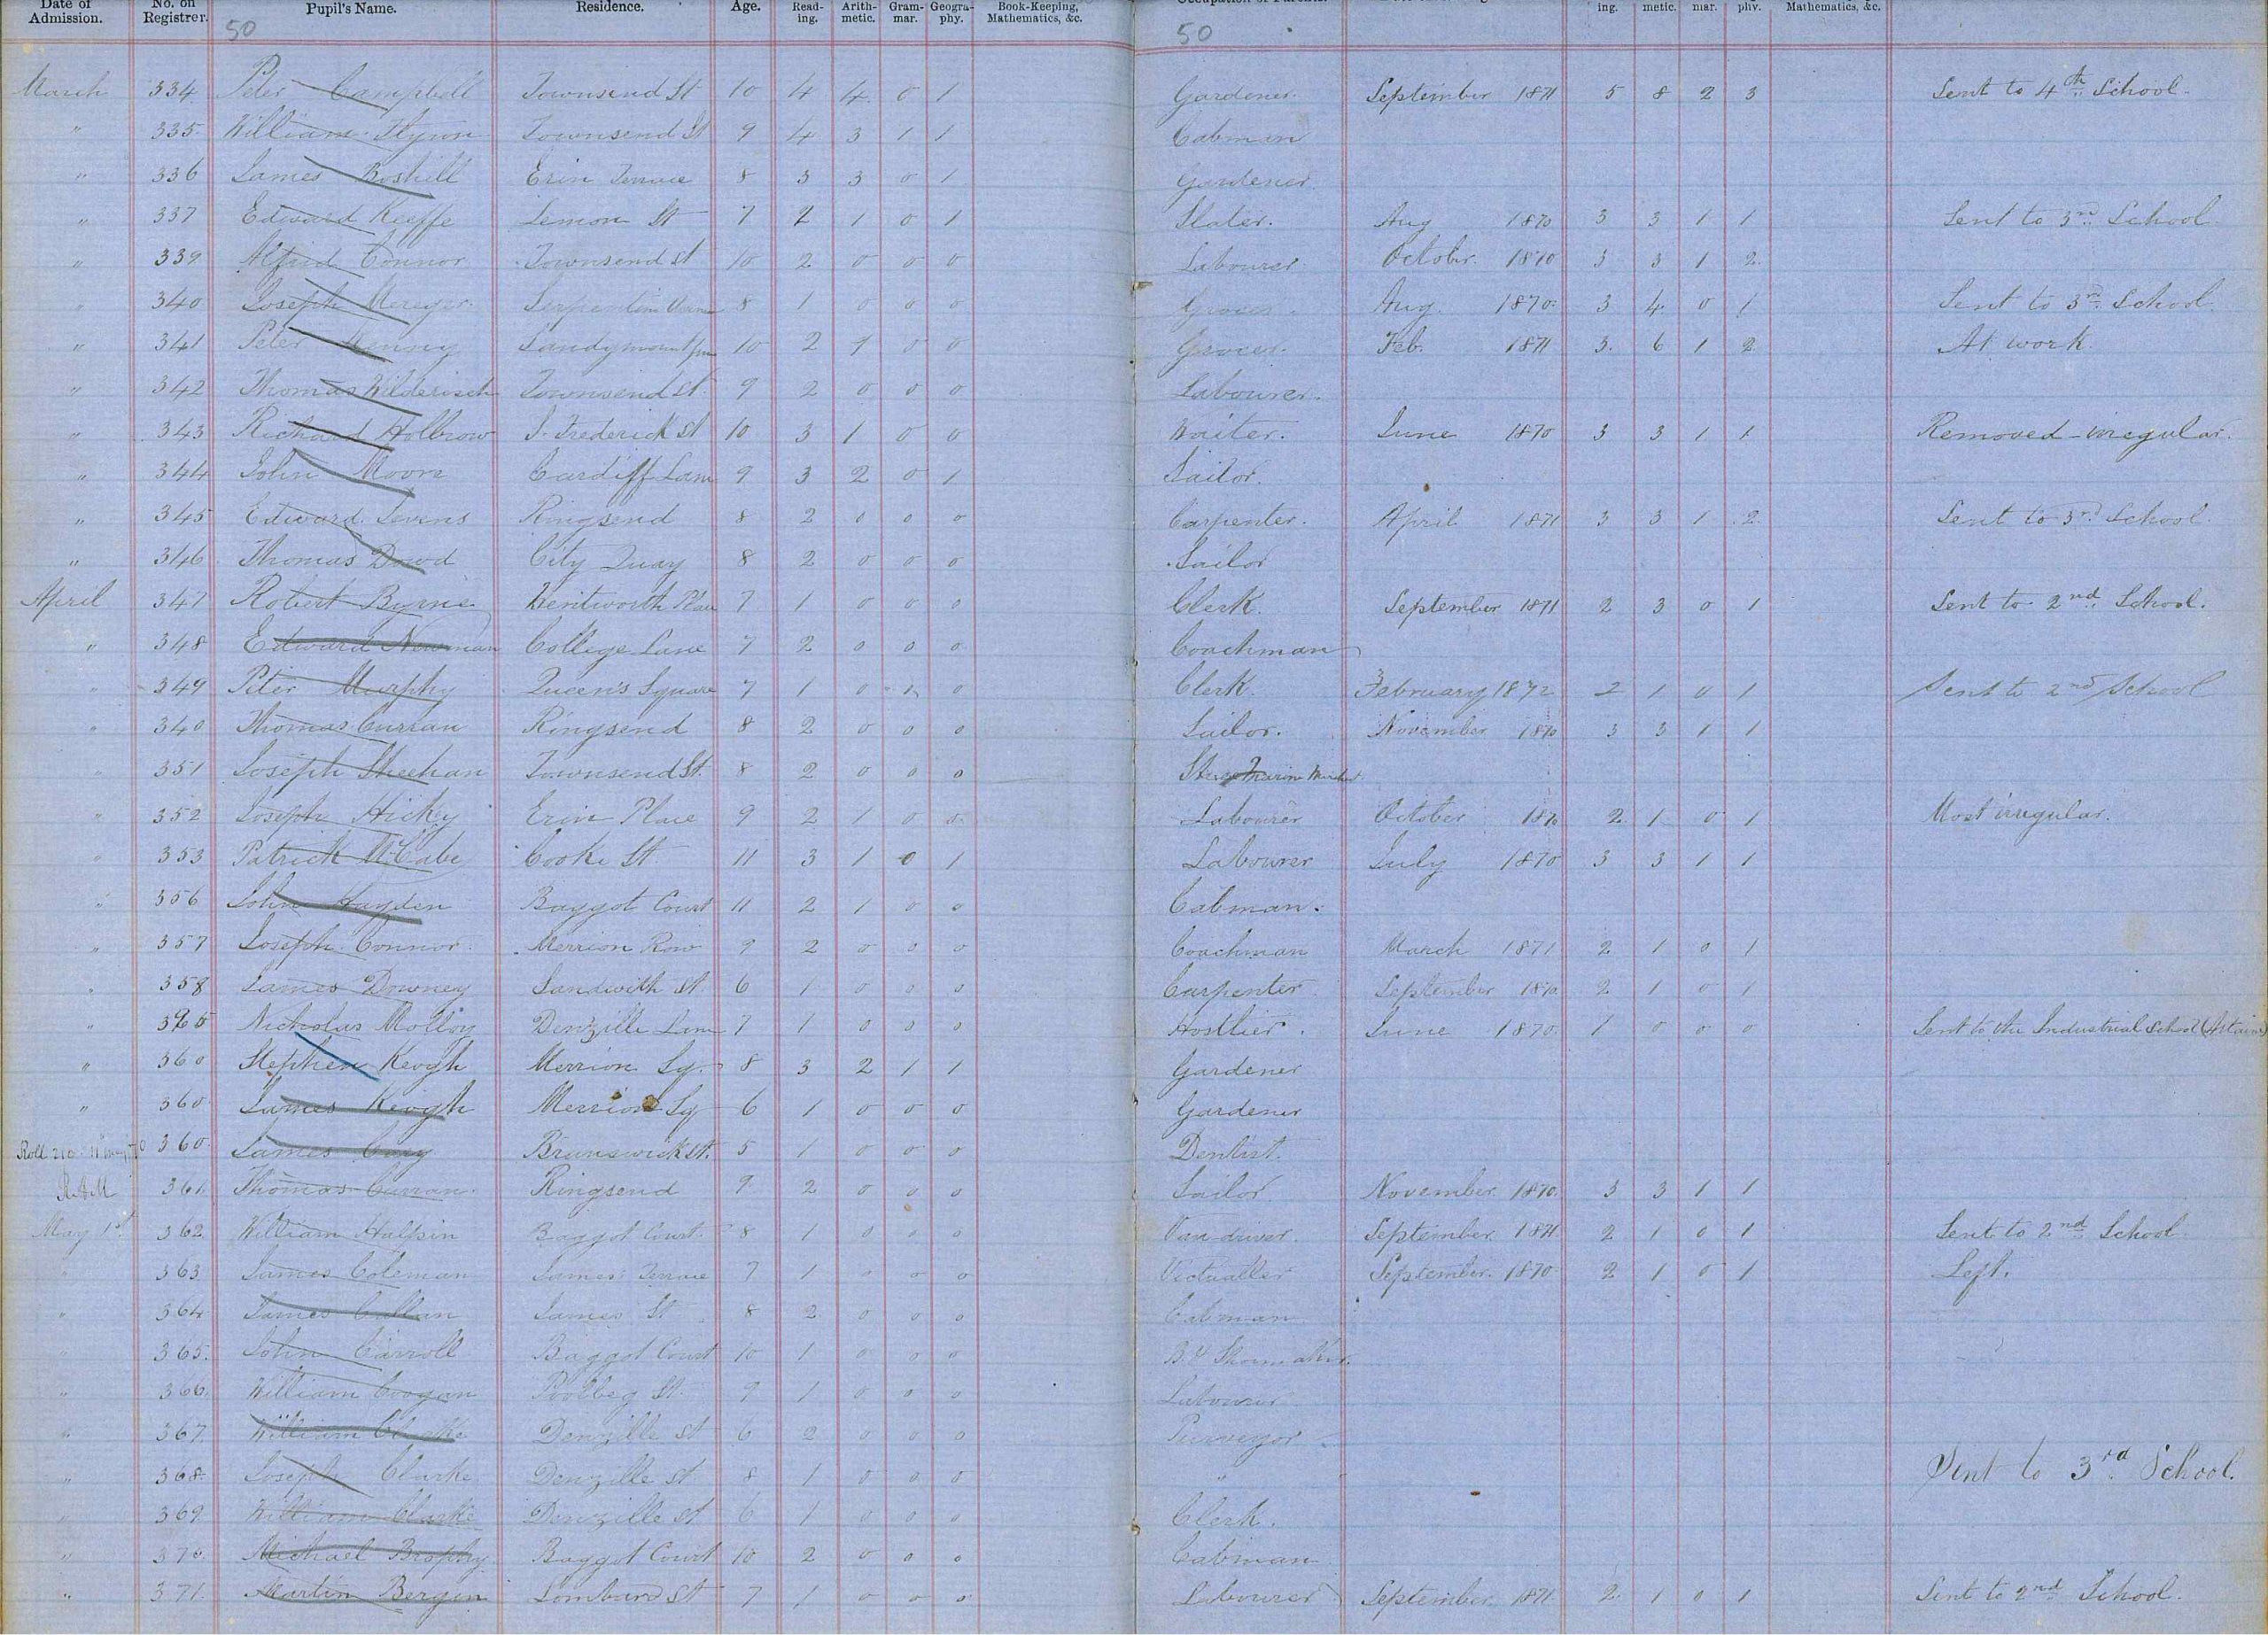 Date of Admission. No. on Registrer. Pupil's Name. Residence. Age. Read-ing. Arith-metic. Gram-mar. Geogra-phy. Book-Keeping, Mathematics, &c. Occupation of Parents. ing. metic. mar. phy. Mathematics, &c.
50 50
March 334 Peter Campbell Townsend St 10 4 4 0 1 Gardener. September 1871 5 8 2 3 Sent to 4th School.
" 335 William Flynn Townsend St 9 4 3 1 1 Cabman
" 336 James Boshell Erin Terrace 8 3 3 0 1 Gardener.
" 337 Edward Keeffe Lemon St 7 2 1 0 1 Slater. Aug 1870 3 3 1 1 Sent to 3rd School
" 339 Alfrid Connor Townsend St 10 2 0 0 0 Labourer October. 1870 3 3 1 2 
" 340 Joseph 8 1 0 0 0 Grocer. Aug. 1870 3 4 0 1 Sent to 3rd School.
" 341 Peter Sandymount 10 2 1 0 0 Grocer. Feb. 1871 3 6 1 2 At work.
" 342 Thomas Townsend St. 9 2 0 0 0 Labourer.
" 343 Richard Holbrow S. Frederick St 10 3 1 0 0 Waiter. June 1870 3 3 1 1 Removed - irregular.
" 344 John Moore Cardiff Lane 9 3 2 0 1 Sailor.
" 345 Edward Ringsend 8 2 0 0 0 Carpenter. April 1871 3 3 1 2 Sent to 3rd School.
" 346 Thomas Dowd City Quay 8 2 0 0 0 Sailor
April 347 Robert Byrne Wentworth Place 7 1 0 0 0 Clerk. September 1871 2 3 0 1 Sent to 2nd School.
" 348 Edward Newman College Lane 7 2 0 0 0 Coachman
" 349 Peter Murphy Queen's Square 7 1 0 0 Clerk. February 1872 2 1 0 1 Sent to 2nd School
" 340 Thomas Curran Ringsend 8 2 0 0 0 Sailor. November 1870 3 3 1 1
" 351 Joseph Sheehan Townsend St. 8 2 0 0 0 Marine
" 352 Joseph Hicky Erin Place 9 2 1 0 0 Labourer October 1870 2 1 0 1 Most irregular.
" 353 Patrick McCabe Cooke St 11 3 1 0 1 Labourer July 1870 3 3 1 1
" 356 John Hayden Baggot Court 11 2 1 0 0 Cabman.
" 357 Joseph Connor Merrion Row 9 2 0 0 0 Coachman March 1871 2 1 0 1
" 358 James Downey Sandwith St. 6 1 0 0 0 Carpenter September 1870 2 1 0 1
" Nicholas Molloy Denzille Lane 7 1 0 0 0 Hostlier. June 1870 1 0 0 0 Sent to the Industrial School (Artaine)
" 360 Stephen Keogh Merrion Sq. 8 3 2 1 1 Gardener
" 360 James Keogh Merrion Sq 6 1 0 0 0 Gardener
Roll 360 James Brunswick St. 5 1 0 0 0 Dentist.
361 Thomas Curran Ringsend 9 2 0 0 0 Sailor November 1870 3 3 1 1
May 1st 362 William Halpin Baggot Court. 8 1 0 0 0 Van driver. September 1871 2 1 0 1 Sent to 2nd School
" 363 James Coleman James Terrace 7 1 0 0 0 Victualler September. 1870 2 1 0 1 Left.
" 364 James Cullan James St 8 2 0 0 0 Cabman
" 365. John Carroll Baggot Court 10 1 0 0 0 Shoemaker.
" 366 William Coogan Poolbeg St. 9 1 0 0 0 Labourer
" 367. William Clarke Denzille St 6 2 0 0 0 Purveyor
" 368 Joseph Clarke Denzille St. 8 1 0 0 0 " Sent to 3rd School.
" 369 William Clarke Denzille St 6 1 0 0 0 Clerk.
" 370. Michael Brophy Baggot Court 10 2 0 0 0 Cabman
" 371. Martin Bergin Lombard St 7 1 0 0 0 Labourer September 1871 2 1 0 1 Sent to 2nd School.